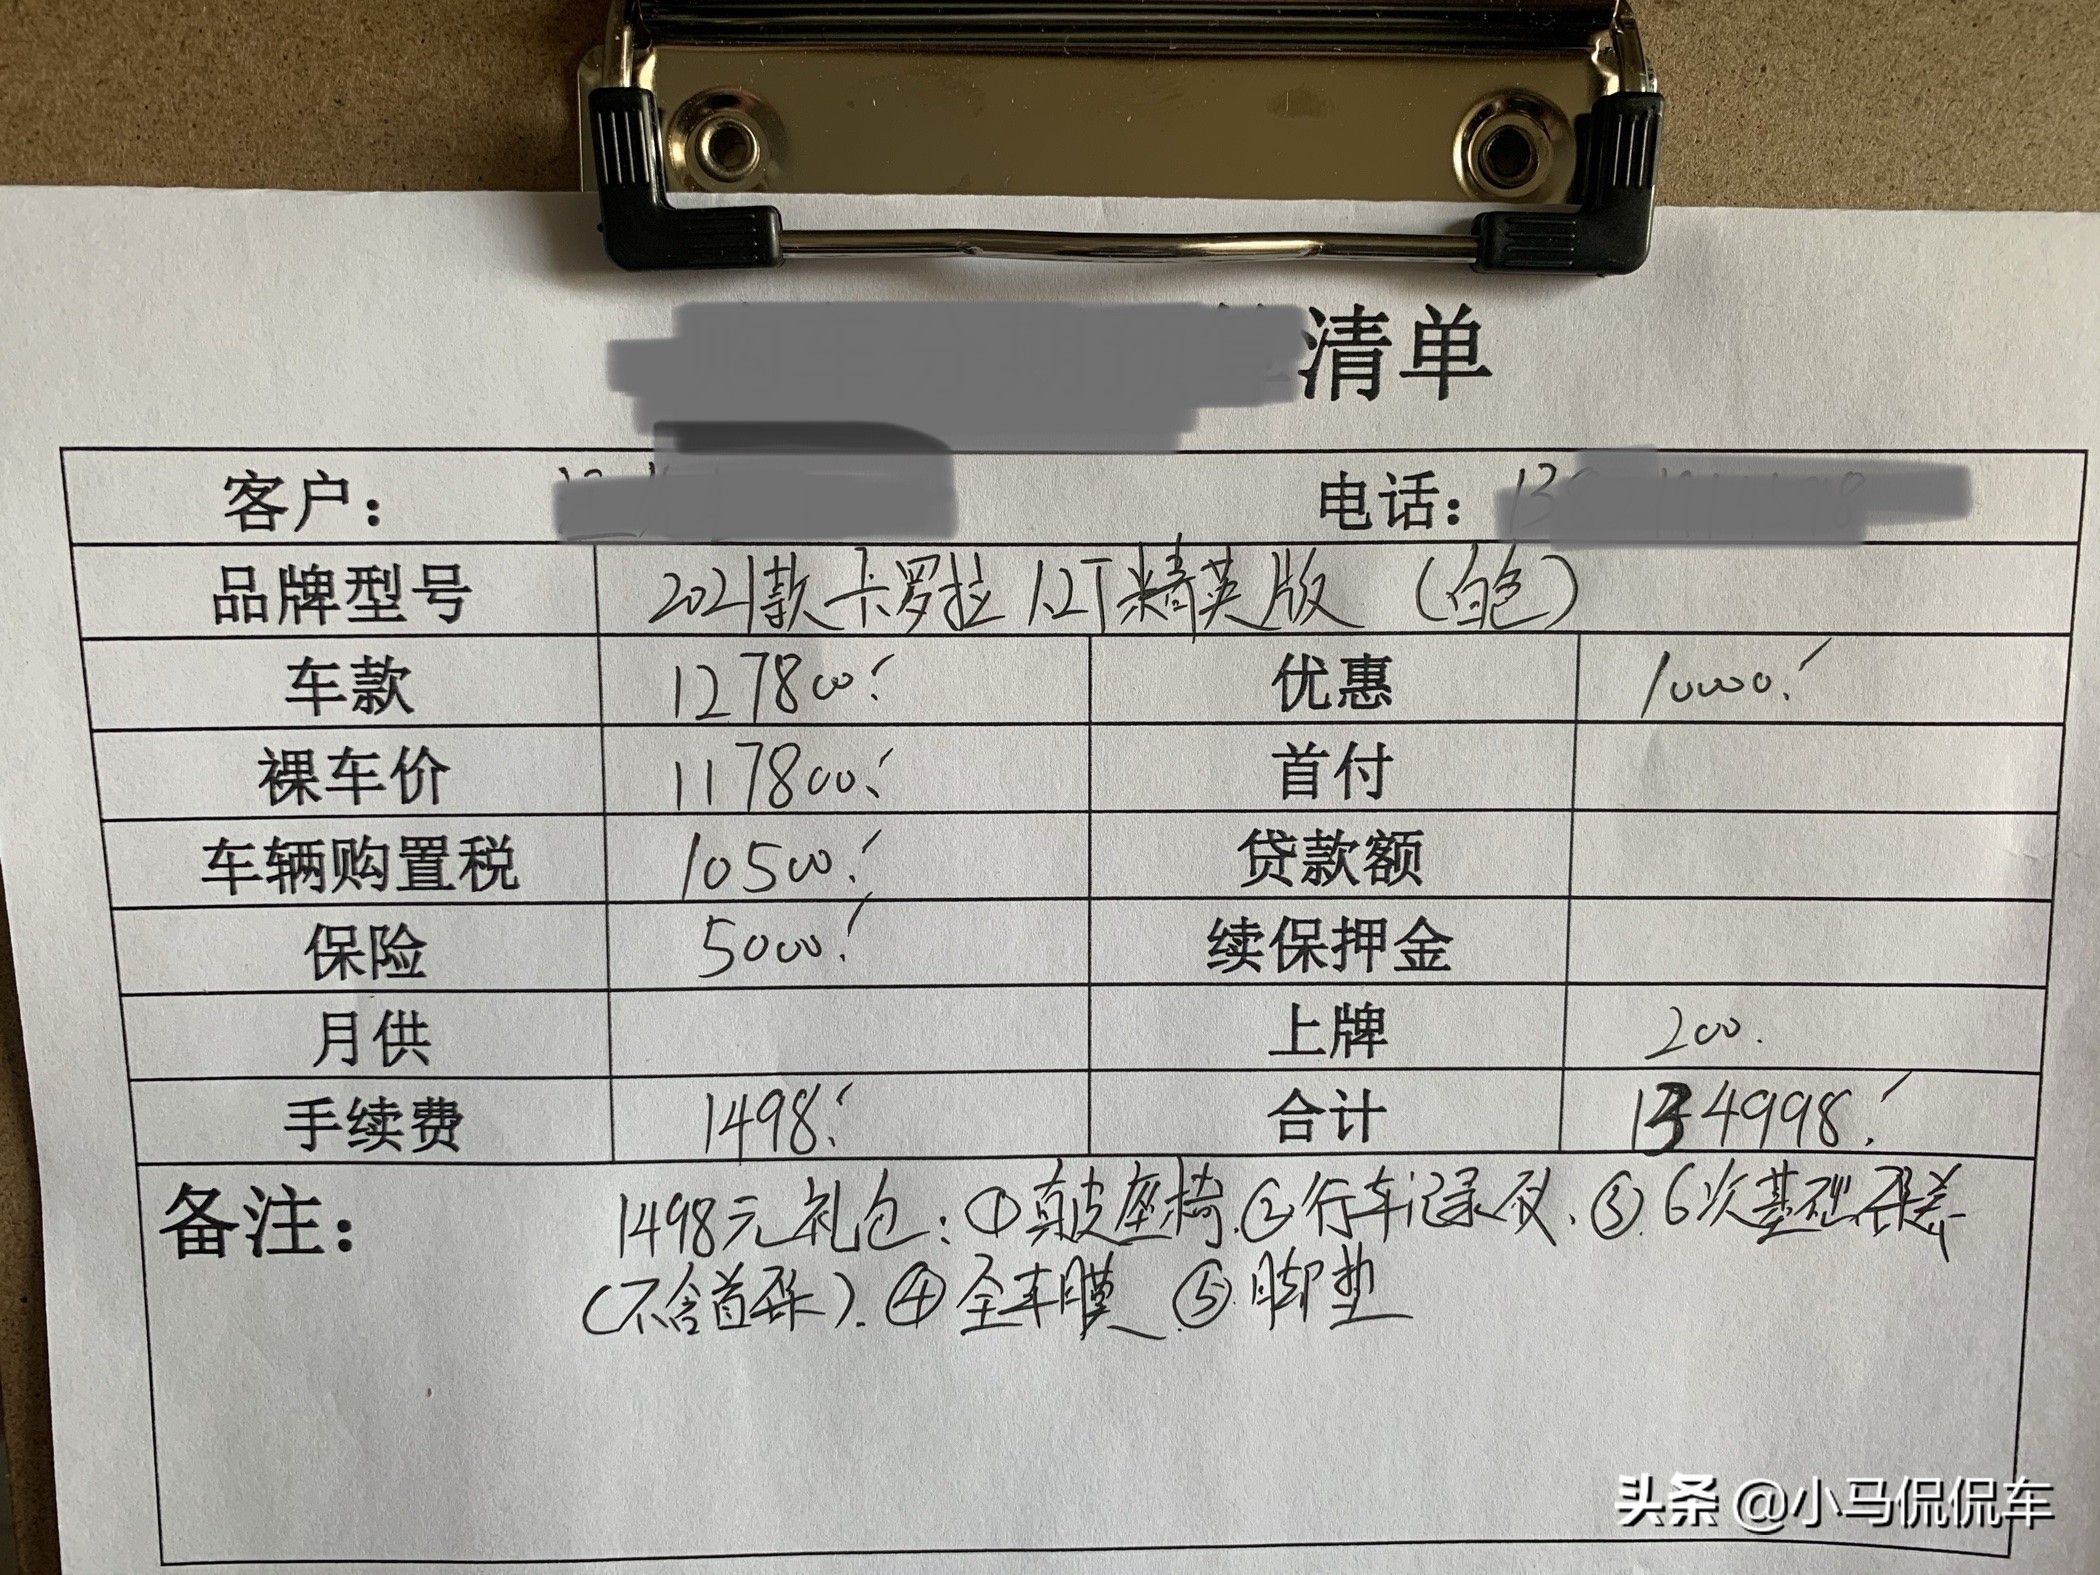 清单
客户： 电话：
品牌型号 2021款卡罗拉 1.2T精英版 （白色）
车款 127800. 优惠 10000.
裸车价 117800. 首付
车辆购置税 10500. 贷款额
保险 5000. 续保押金
月供 上牌 200.
手续费 1498. 合计 134998.
备注： 1498元礼包：①真皮座椅.②行车记录仪、③6次基础保养
（不含首保）.④全车膜.⑤.脚垫
头条 @小马侃侃车